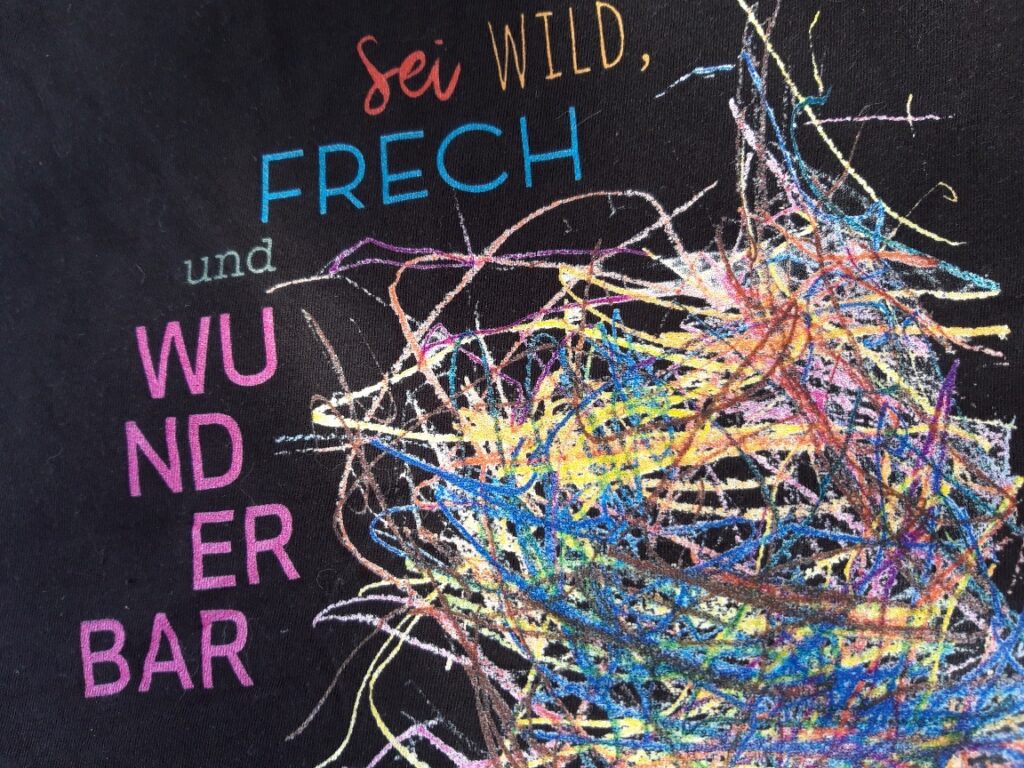 Sei WILD,
FRECH
und
WU
ND
ER
BAR